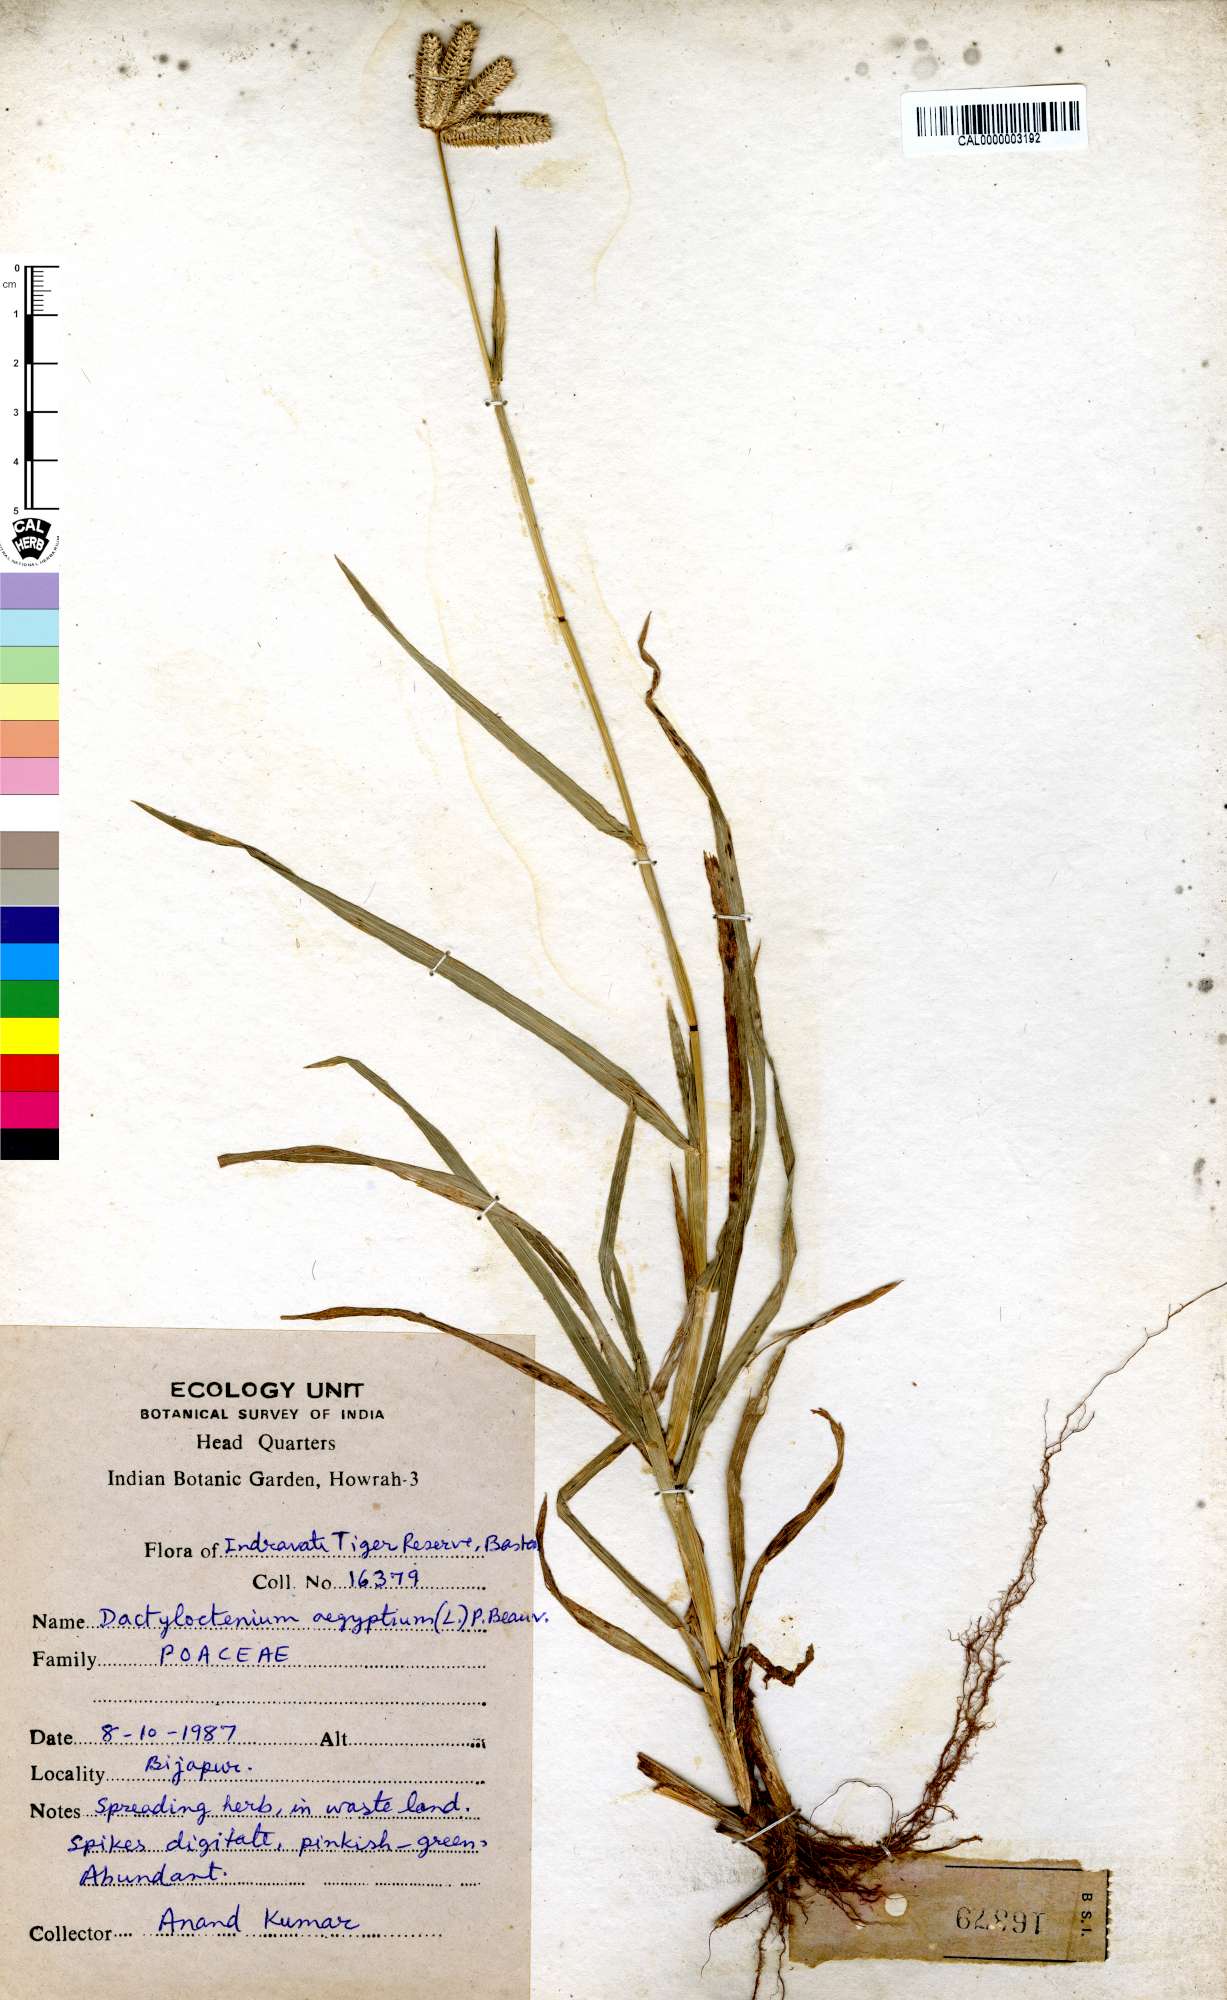 CAL0000003192
0
cm
1
2
3
4
5
CAL
HERB
ECOLOGY UNIT
BOTANICAL SURVEY OF INDIA
Head Quarters
Indian Botanic Garden, Howrah-3
Flora of Indravati Tiger Reserve, Bastar
Coll. No. 16379
Name Dactyloctenium aegyptium (L.) P. Beauv.
Family POACEAE
Date 8-10-1987 Alt
Locality Bijapur.
Notes Spreading herb, in waste land.
Spikes digitate, pinkish-green.
Abundant.
Collector Anand Kumar
B.S.I.
16379